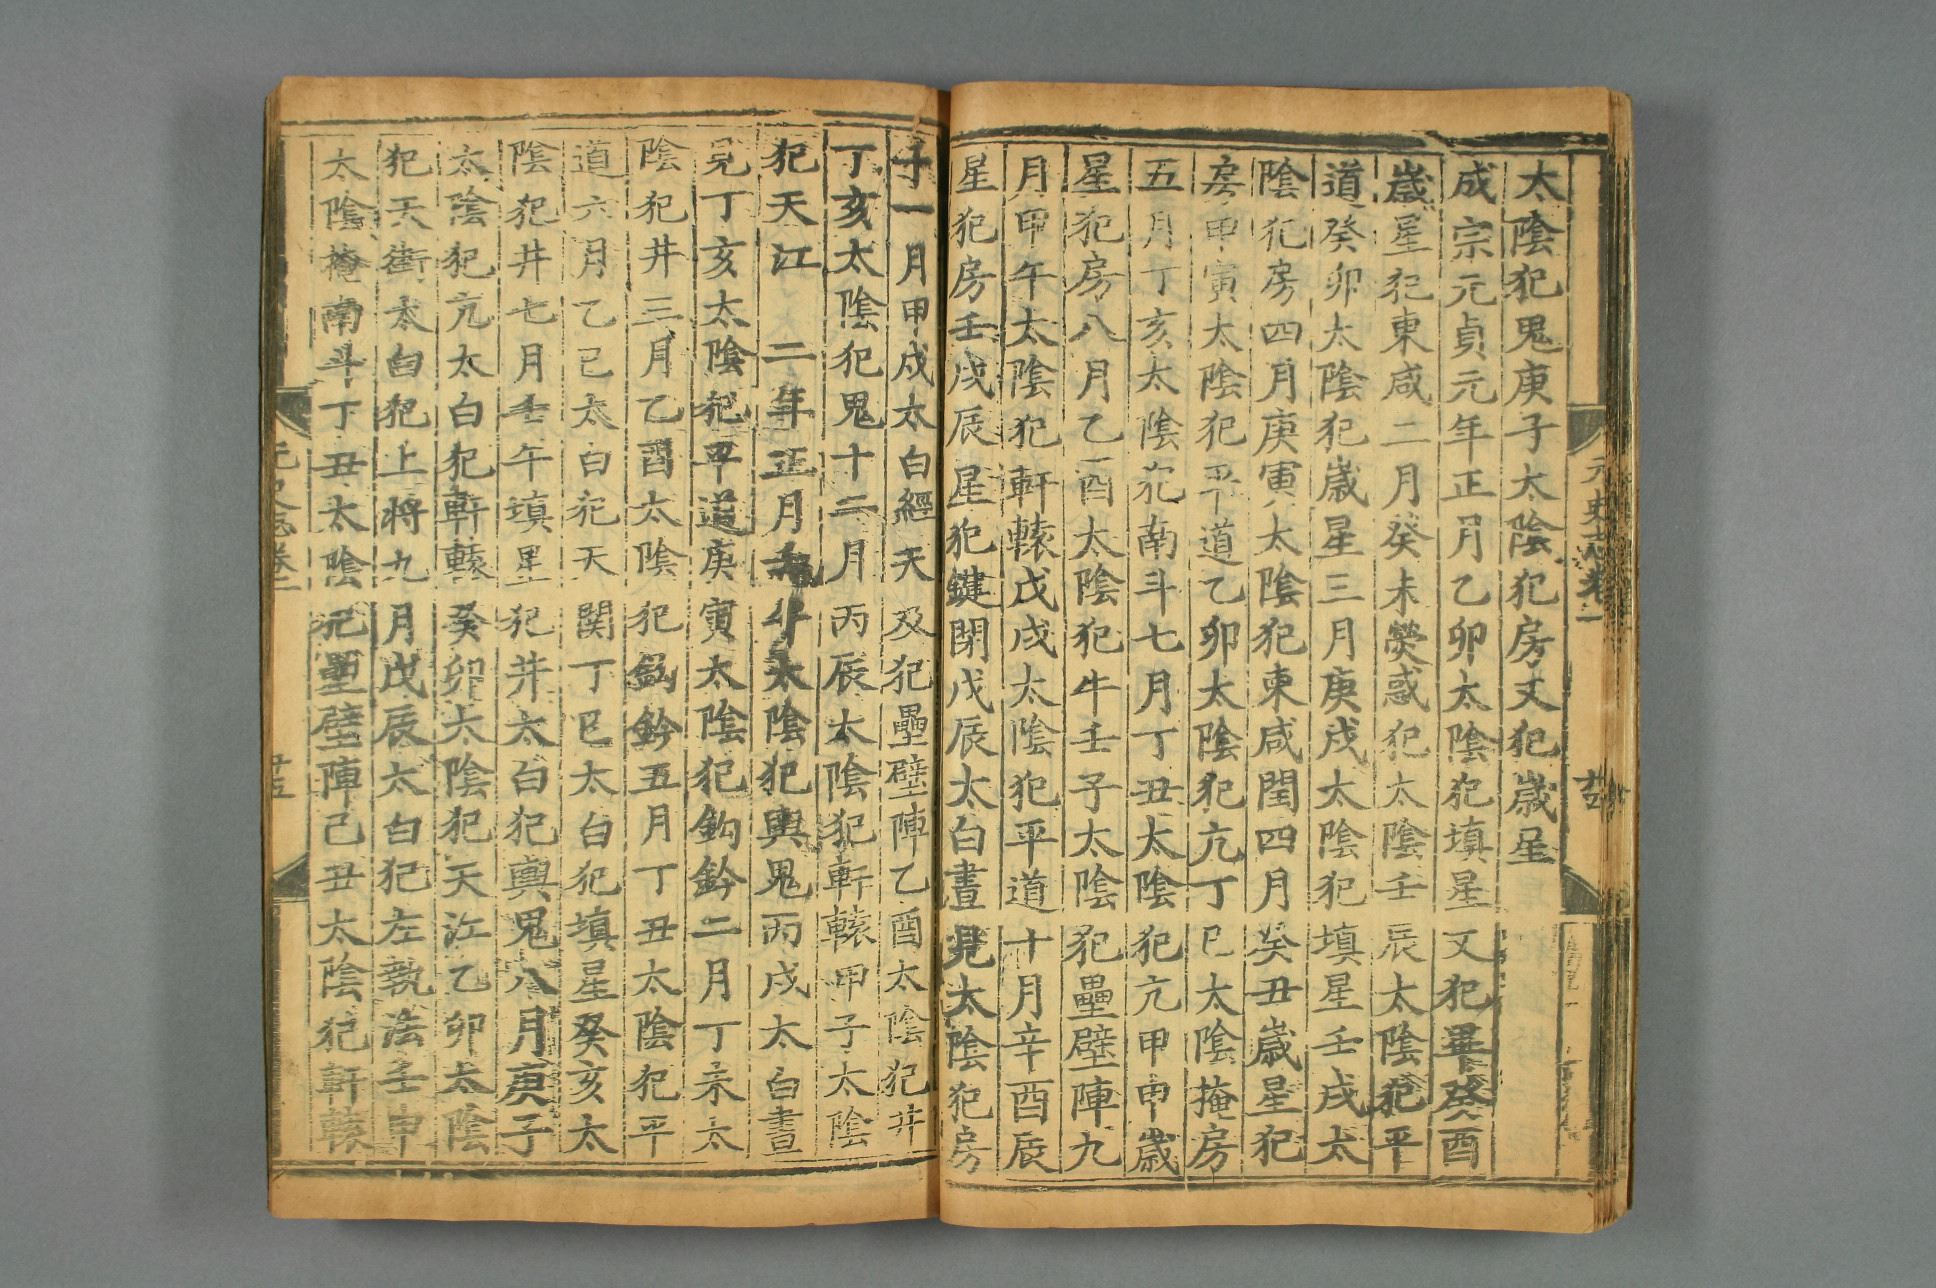 太陰犯鬼庚子太陰犯房又犯歲星
成宗元貞元年正月乙卯太陰犯填星又犯畢癸酉
歲星犯東咸二月癸未熒惑犯太陰壬辰太陰犯平
道癸卯太陰犯歲星三月庚戌太陰犯填星壬戌太
陰犯房四月庚寅太陰犯東咸閏四月癸丑歲星犯
房甲寅太陰犯平道乙卯太陰犯亢丁巳太陰掩房
五月丁亥太陰犯南斗七月丁丑太陰犯亢甲申歲
星犯房八月乙酉太陰犯牛壬子太陰犯壘壁陣九
月甲午太陰犯軒轅戊戌太陰犯平道十月辛酉辰
星犯房壬戌辰星犯鍵閉戊辰太白晝見太陰犯房
子一月甲戌太白經天及犯壘壁陣乙酉太陰犯井
丁亥太陰犯鬼十二月丙辰太陰犯軒轅甲子太陰
犯天江 二年正月壬午太陰犯輿鬼丙戌太白晝
見丁亥太陰犯平道庚寅太陰犯鈎鈐二月丁未太
陰犯井三月乙酉太陰犯鈎鈐五月丁丑太陰犯平
道六月乙巳太白犯天關丁巳太白犯填星癸亥太
陰犯井七月壬午填星犯井太白犯輿鬼八月庚子
太陰犯亢太白犯軒轅癸卯太陰犯天江乙卯太陰
犯天街太白犯上將九月戊辰太白犯左執法壬申
太陰掩南斗丁丑太陰犯壘壁陣己丑太陰犯軒轅
元史志卷二
廿五